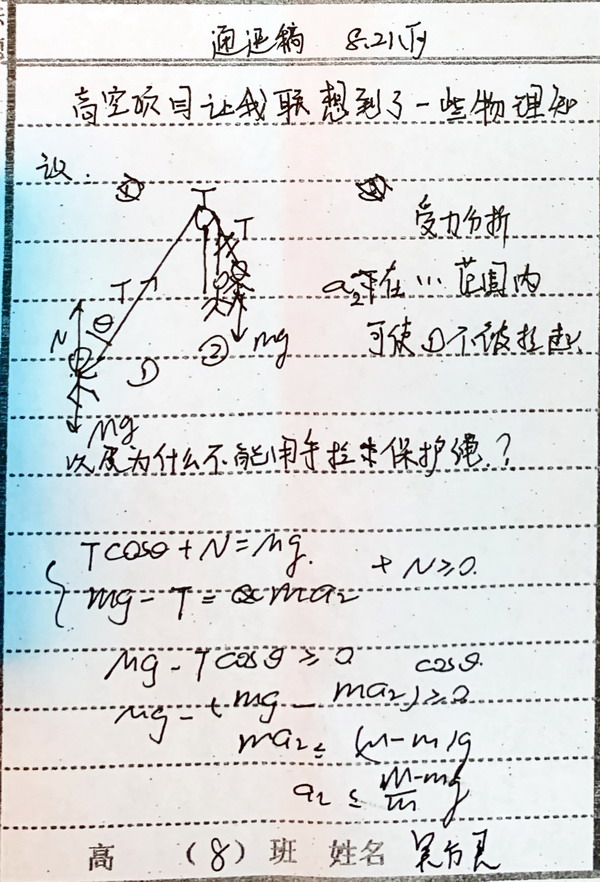 通迅稿 8.21
高空项目让我联想到了一些物理知
识.
T
T
受力分析
T
a₂在…范围内
N θ
② mg
可使①不被拉起.
①
Mg
以及为什么不能用手拉来保护绳.?
Tcosθ + N = Mg.
+ N≥0.
mg - T = ma₂
Mg - Tcosθ ≥ 0
cosθ.
Mg - (mg - ma₂) ≥ 0
ma₂ ≤ (M-m)g
a₂ ≤ M-m/m g
高 （8）班 姓名